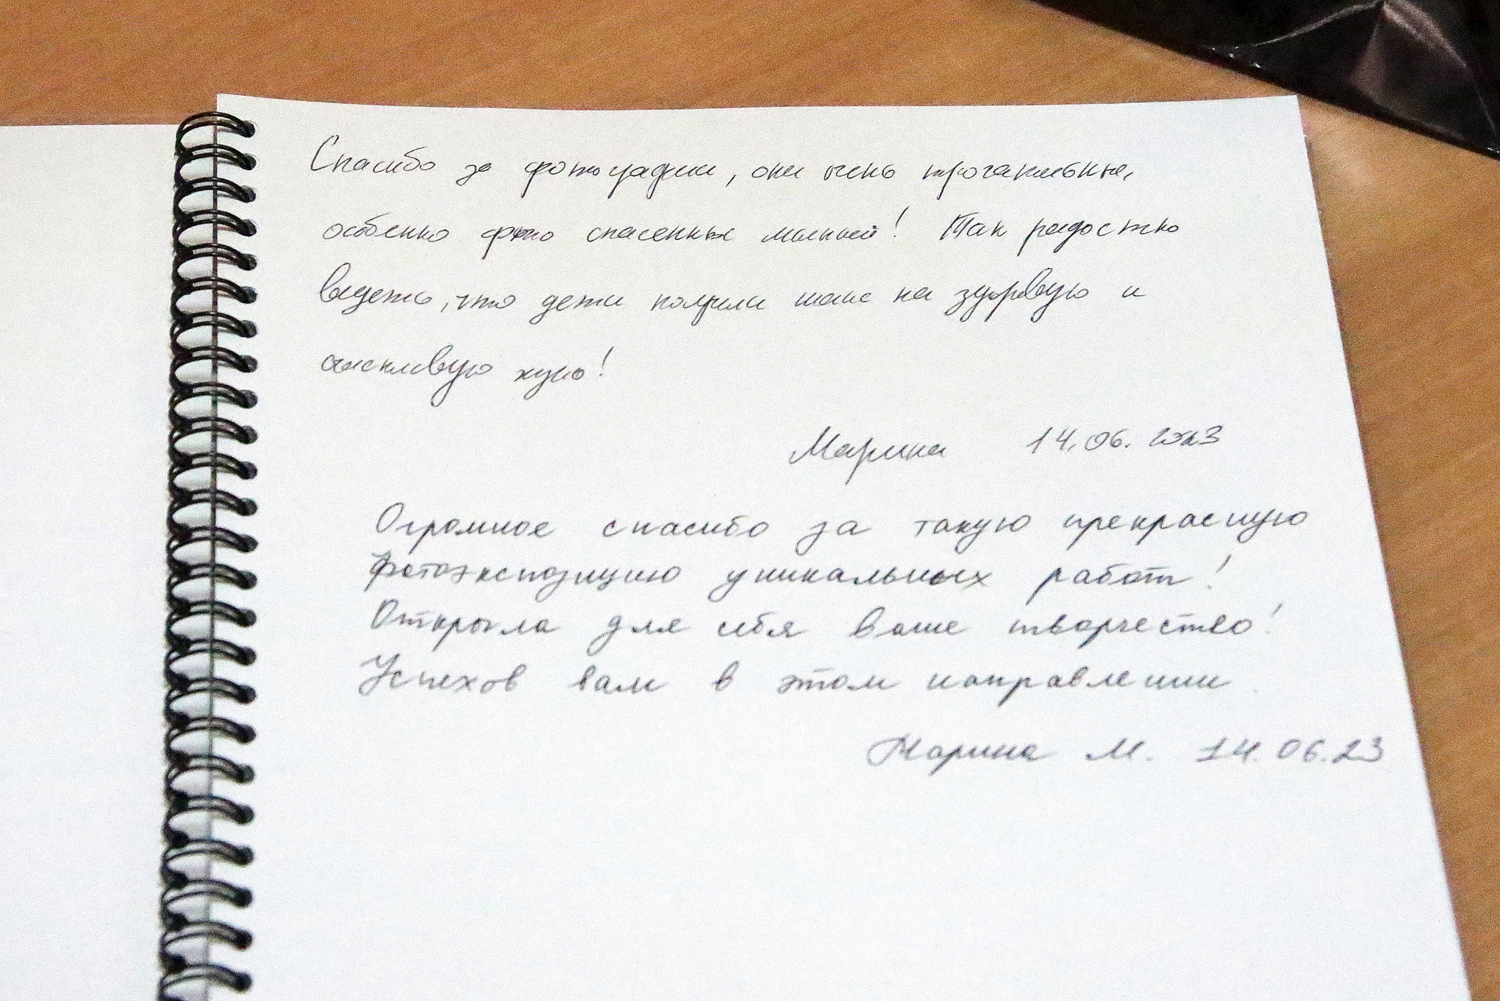 Спасибо за фотографии, они очень трогательные,
особенно фото спасенных малышей! Так радостно
видеть, что дети получили шанс на здоровую и
счастливую жизнь!
Марина 14.06.2023
Огромное спасибо за такую прекрасную
фотоэкспозицию уникальных работ!
Открыла для себя ваше творчество!
Успехов вам в этом направлении
Марина М. 14.06.23